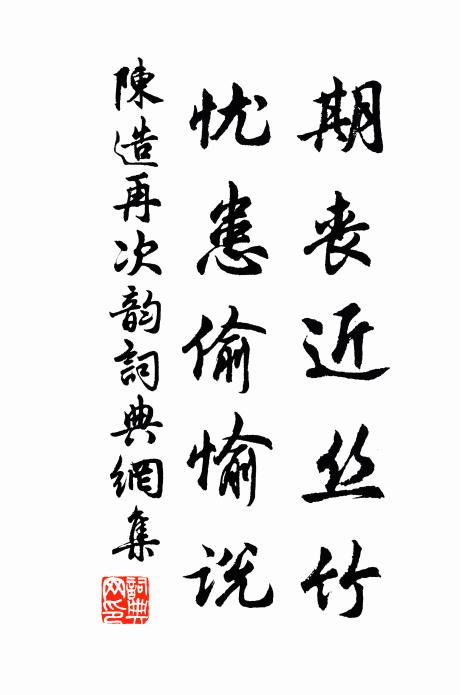 期丧近丝竹
忧患偷愉说
陳造再次韵詞典網集
詞典网印